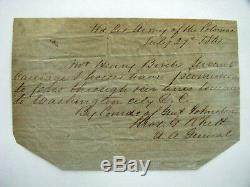 Hd Qrs Army of the Potomac
July 27th 1861
Mr Henry Bibles Servant
Carriage & horses have permission
to pass through our lines
to Washington City D.C.
By Comdr of Genl Johnston
A A General